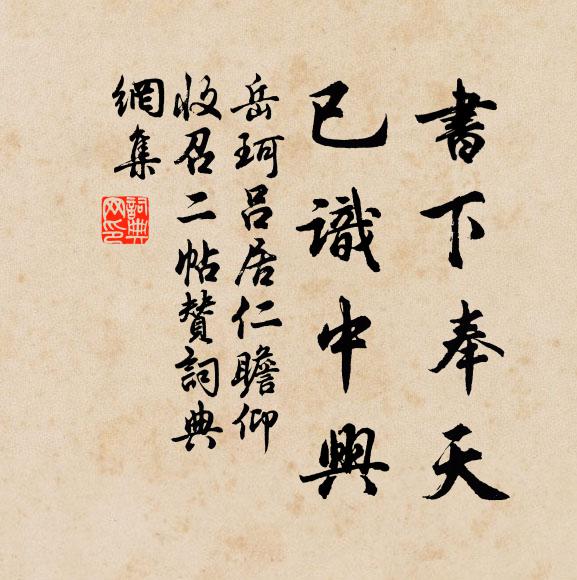 書下奉天
已識中興
岳珂呂居仁瞻仰
收召二帖贊詞典
網集
詞典網印